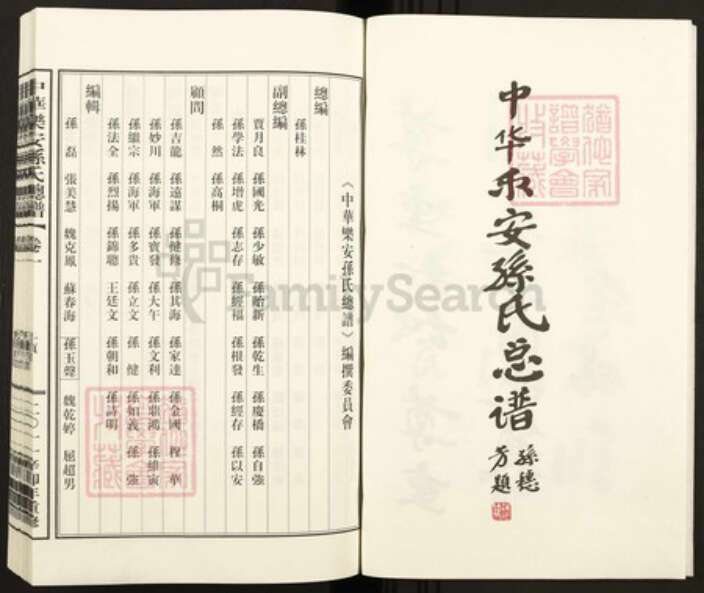 中华乐安孙氏总谱
孫穗
芳題
《中華樂安孫氏總譜》編撰委員會
總編
孫桂林
副總編
賈月良 孫國光 孫少敏 孫貽新 孫乾生 孫慶橋 孫自強
孫學法 孫增虎 孫志存 孫經福 孫根發 孫經存 孫以安
孫然 孫高桐
顧問
孫吉龍 孫遠謀 孫健修 孫其海 孫家達 孫金國 程華
孫妙川 孫海軍 孫寶發 孫大午 孫文利 孫鼎鴻 孫維寅
孫繼宗 孫海軍 孫多貴 孫立文 孫健 孫如義 孫強
孫法全 孫烈揚 孫錦聰 王廷文 孫朝和 孫詩明
編輯
孫磊 張美慧 魏克鳳 蘇春海 孫玉聲 魏乾婷 屈超男
中華樂安孫氏總譜
卷一
二〇一一辛卯年重修
FamilySearch